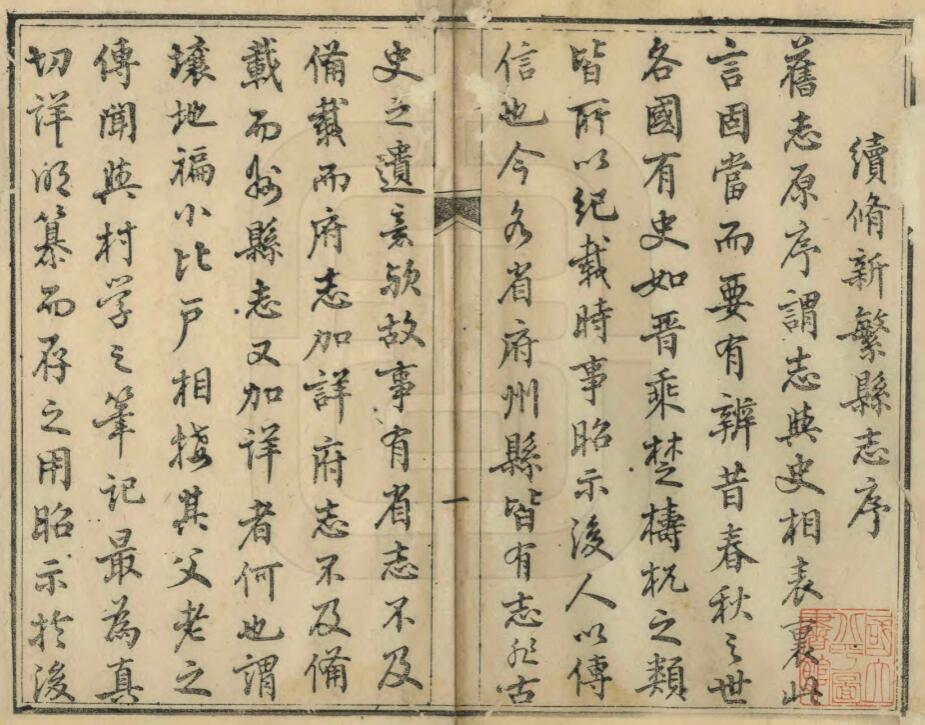 續脩新繁縣志序
舊志原序謂志與史相表裏此
言固當而要有辨昔春秋之世
各國有史如晋乘楚檮杌之類
皆所以紀載時事昭示後人以傳
信也今各省府州縣皆有志祁古
史之遺意歟故事有省志不及
備載而府志加詳府志不及備
載而州縣志又加詳者何也謂
壤地褊小比戸相接其父老之
傳聞與村学之筆記最為真
切詳明纂而存之用昭示扵後
一